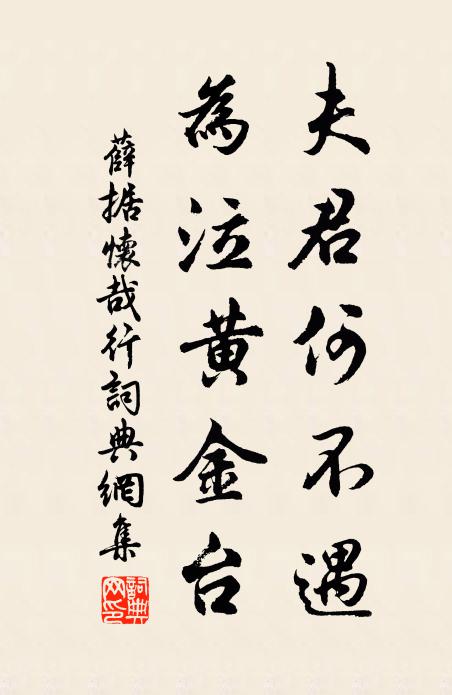 夫君何不遇
為泣黄金台
薛据懷哉行詞典網集
詞典网印